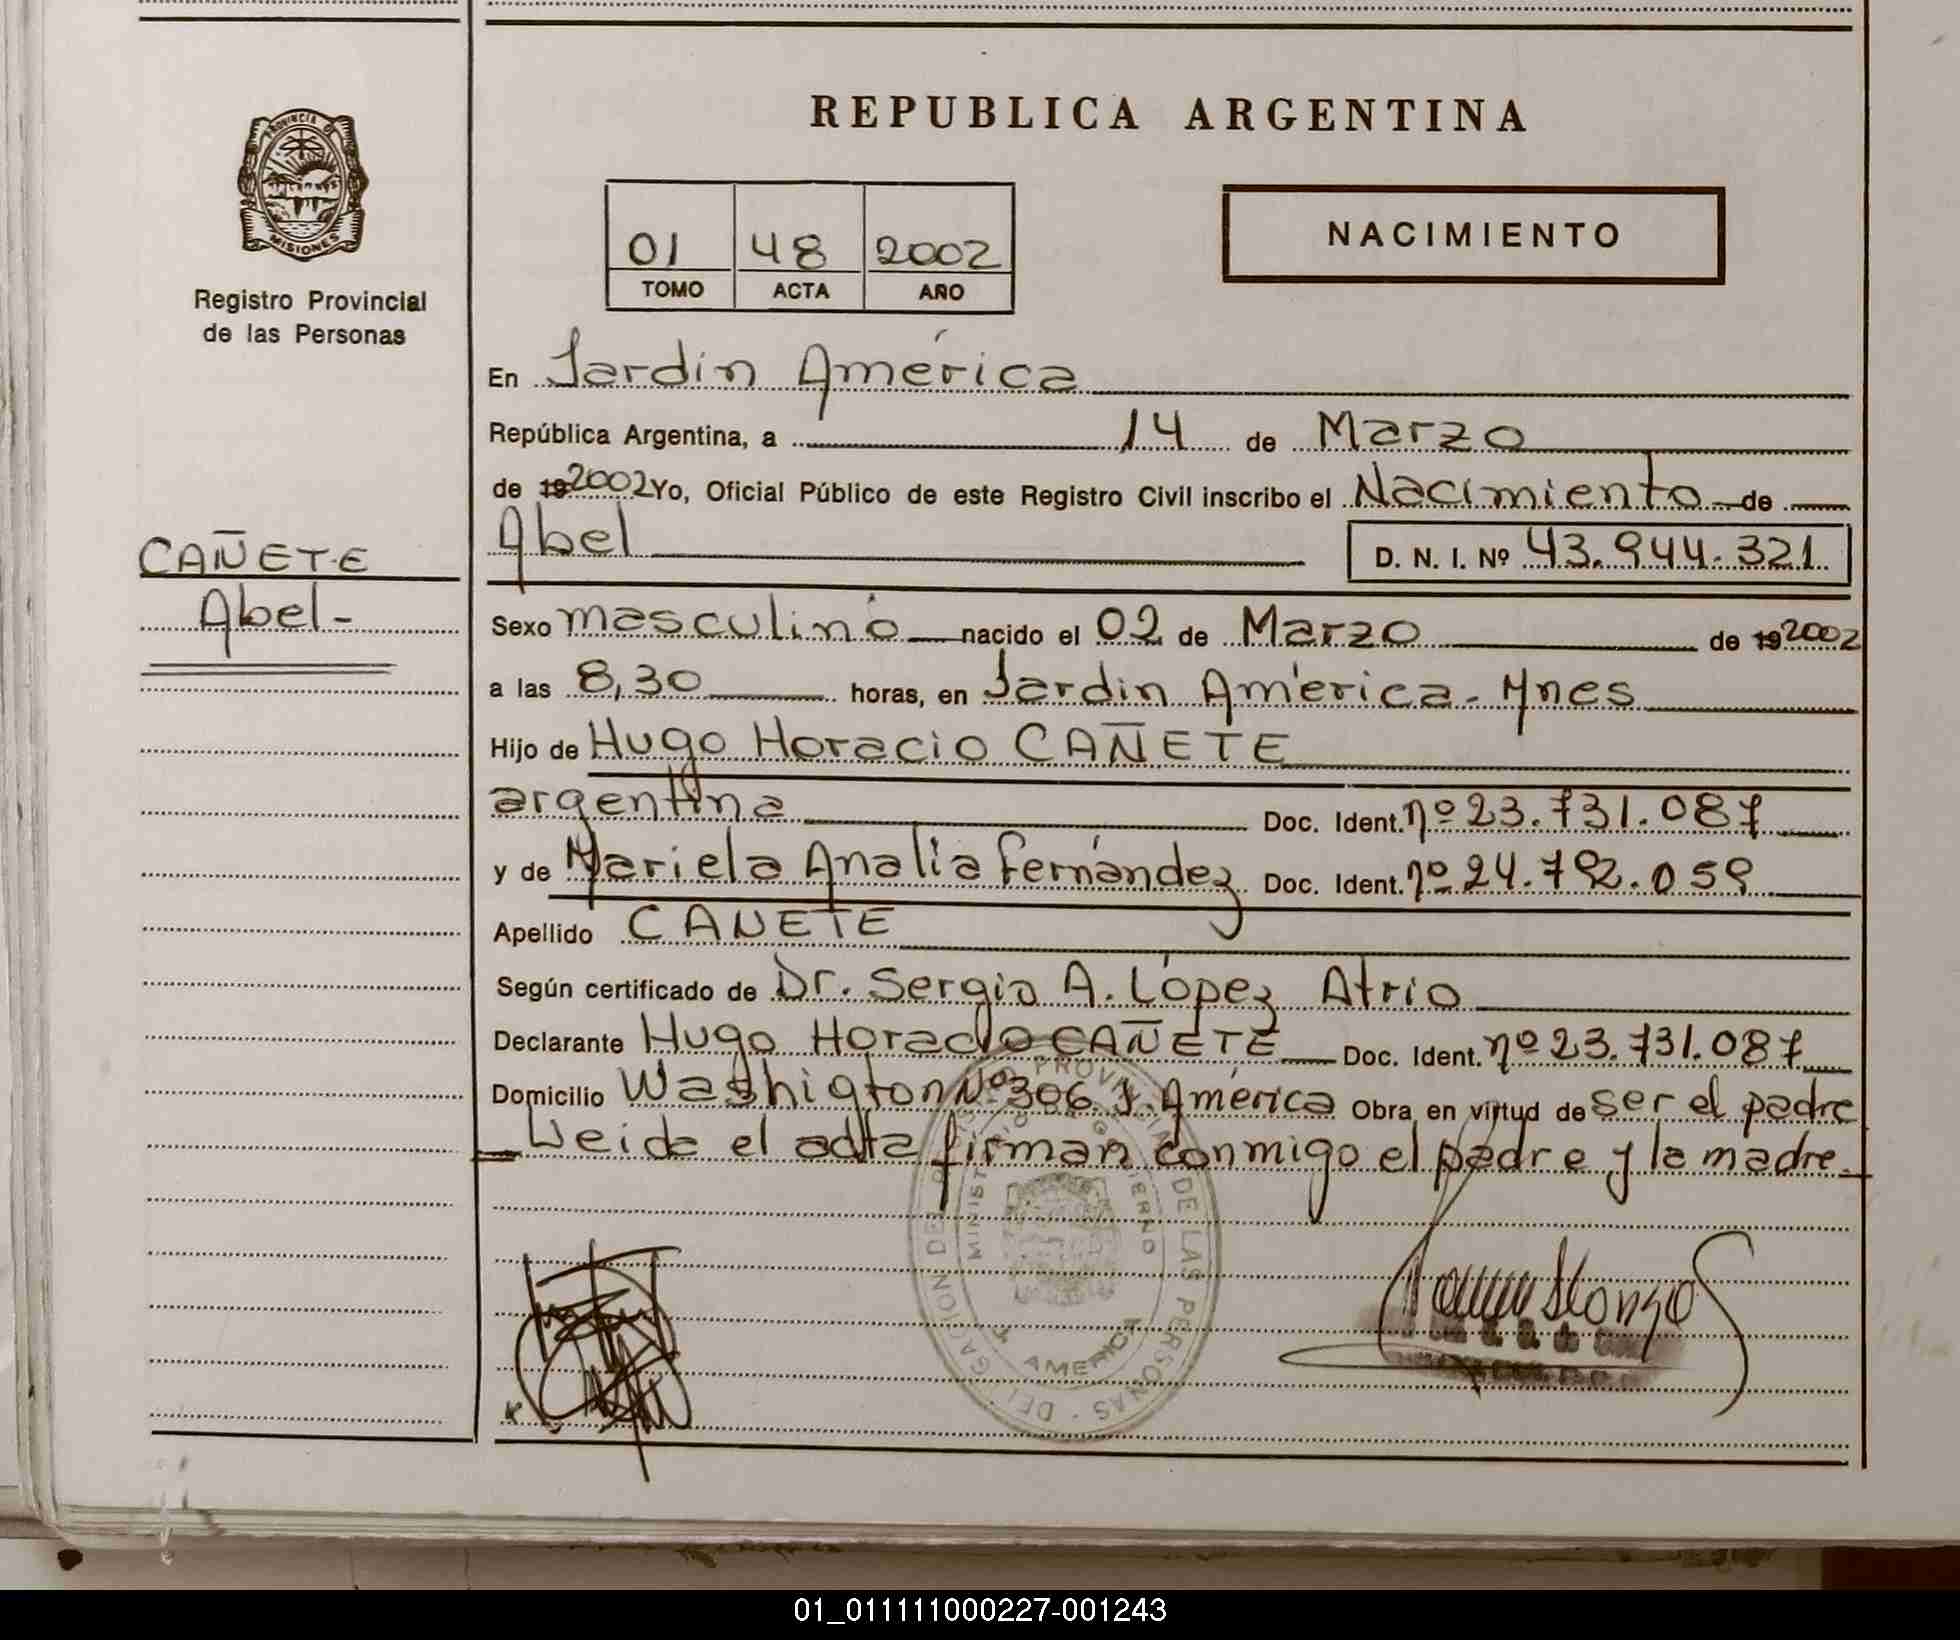 REPUBLICA ARGENTINA
PROVINCIA DE
MISIONES
Registro Provincial
de las Personas
01 48 2002
TOMO ACTA AÑO
NACIMIENTO
En Jardín América
República Argentina, a 14 de Marzo
de 19 2002 Yo, Oficial Público de este Registro Civil inscribo el Nacimiento de
Abel D. N. I. Nº 43.944.321
CAÑETE
Abel-
Sexo masculino nacido el 02 de Marzo de 19 2002
a las 8,30 horas, en Jardín América - Mnes
Hijo de Hugo Horacio CAÑETE
argentina Doc. Ident. nº 23.731.087
y de Mariela Analía Fernández Doc. Ident. nº 24.792.059
Apellido CAÑETE
Según certificado de Dr. Sergio A. López Atrio
Declarante Hugo Horacio CAÑETE Doc. Ident. nº 23.731.087
Domicilio Washigton Nº 306 J. América Obra en virtud de ser el padre
Leida el acta firman conmigo el padre y la madre.
PROVINCIAL DE LAS PERSONAS · DELEGACION
J. AMERICA
01_011111000227-001243